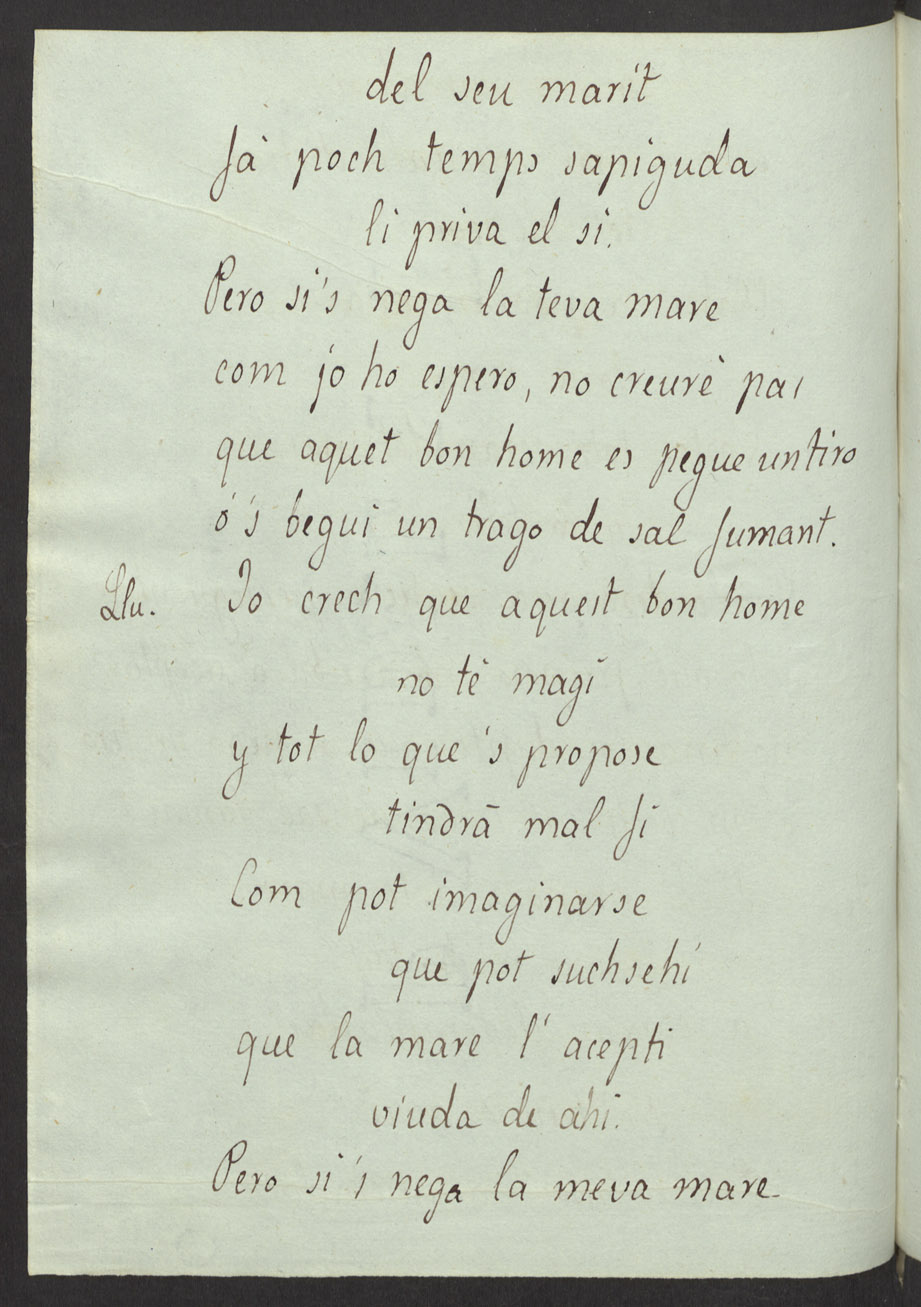 del seu marit
fá poch temps sapiguda
li priva el si.
Pero si's nega la teva mare
com jo ho espero, no creuré pas
que aquet bon home es pegue un tiro
ó's begui un trago de sal fumant.
Llu. Jo crech que aquest bon home
no té magí
y tot lo que 's propose
tindrá mal fi
Com pot imaginarse
que pot suchsehí
que la mare l' acepti
viuda de ahi.
Pero si 's nega la meva mare